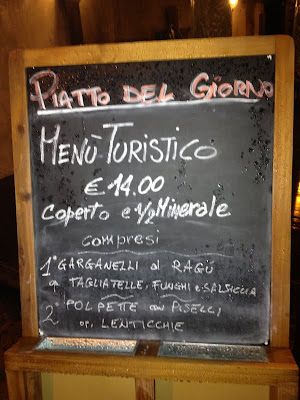 PIATTO DEL GIORNO
MENÙ TURISTICO
€ 14.00
COPERTO e 1/2 MINERALE
COMPRESI
1° GARGANELLI al RAGÙ
o TAGLIATELLE, FUNGHI e SALSICCIA
2° POLPETTE con PISELLI
op. LENTICCHIE